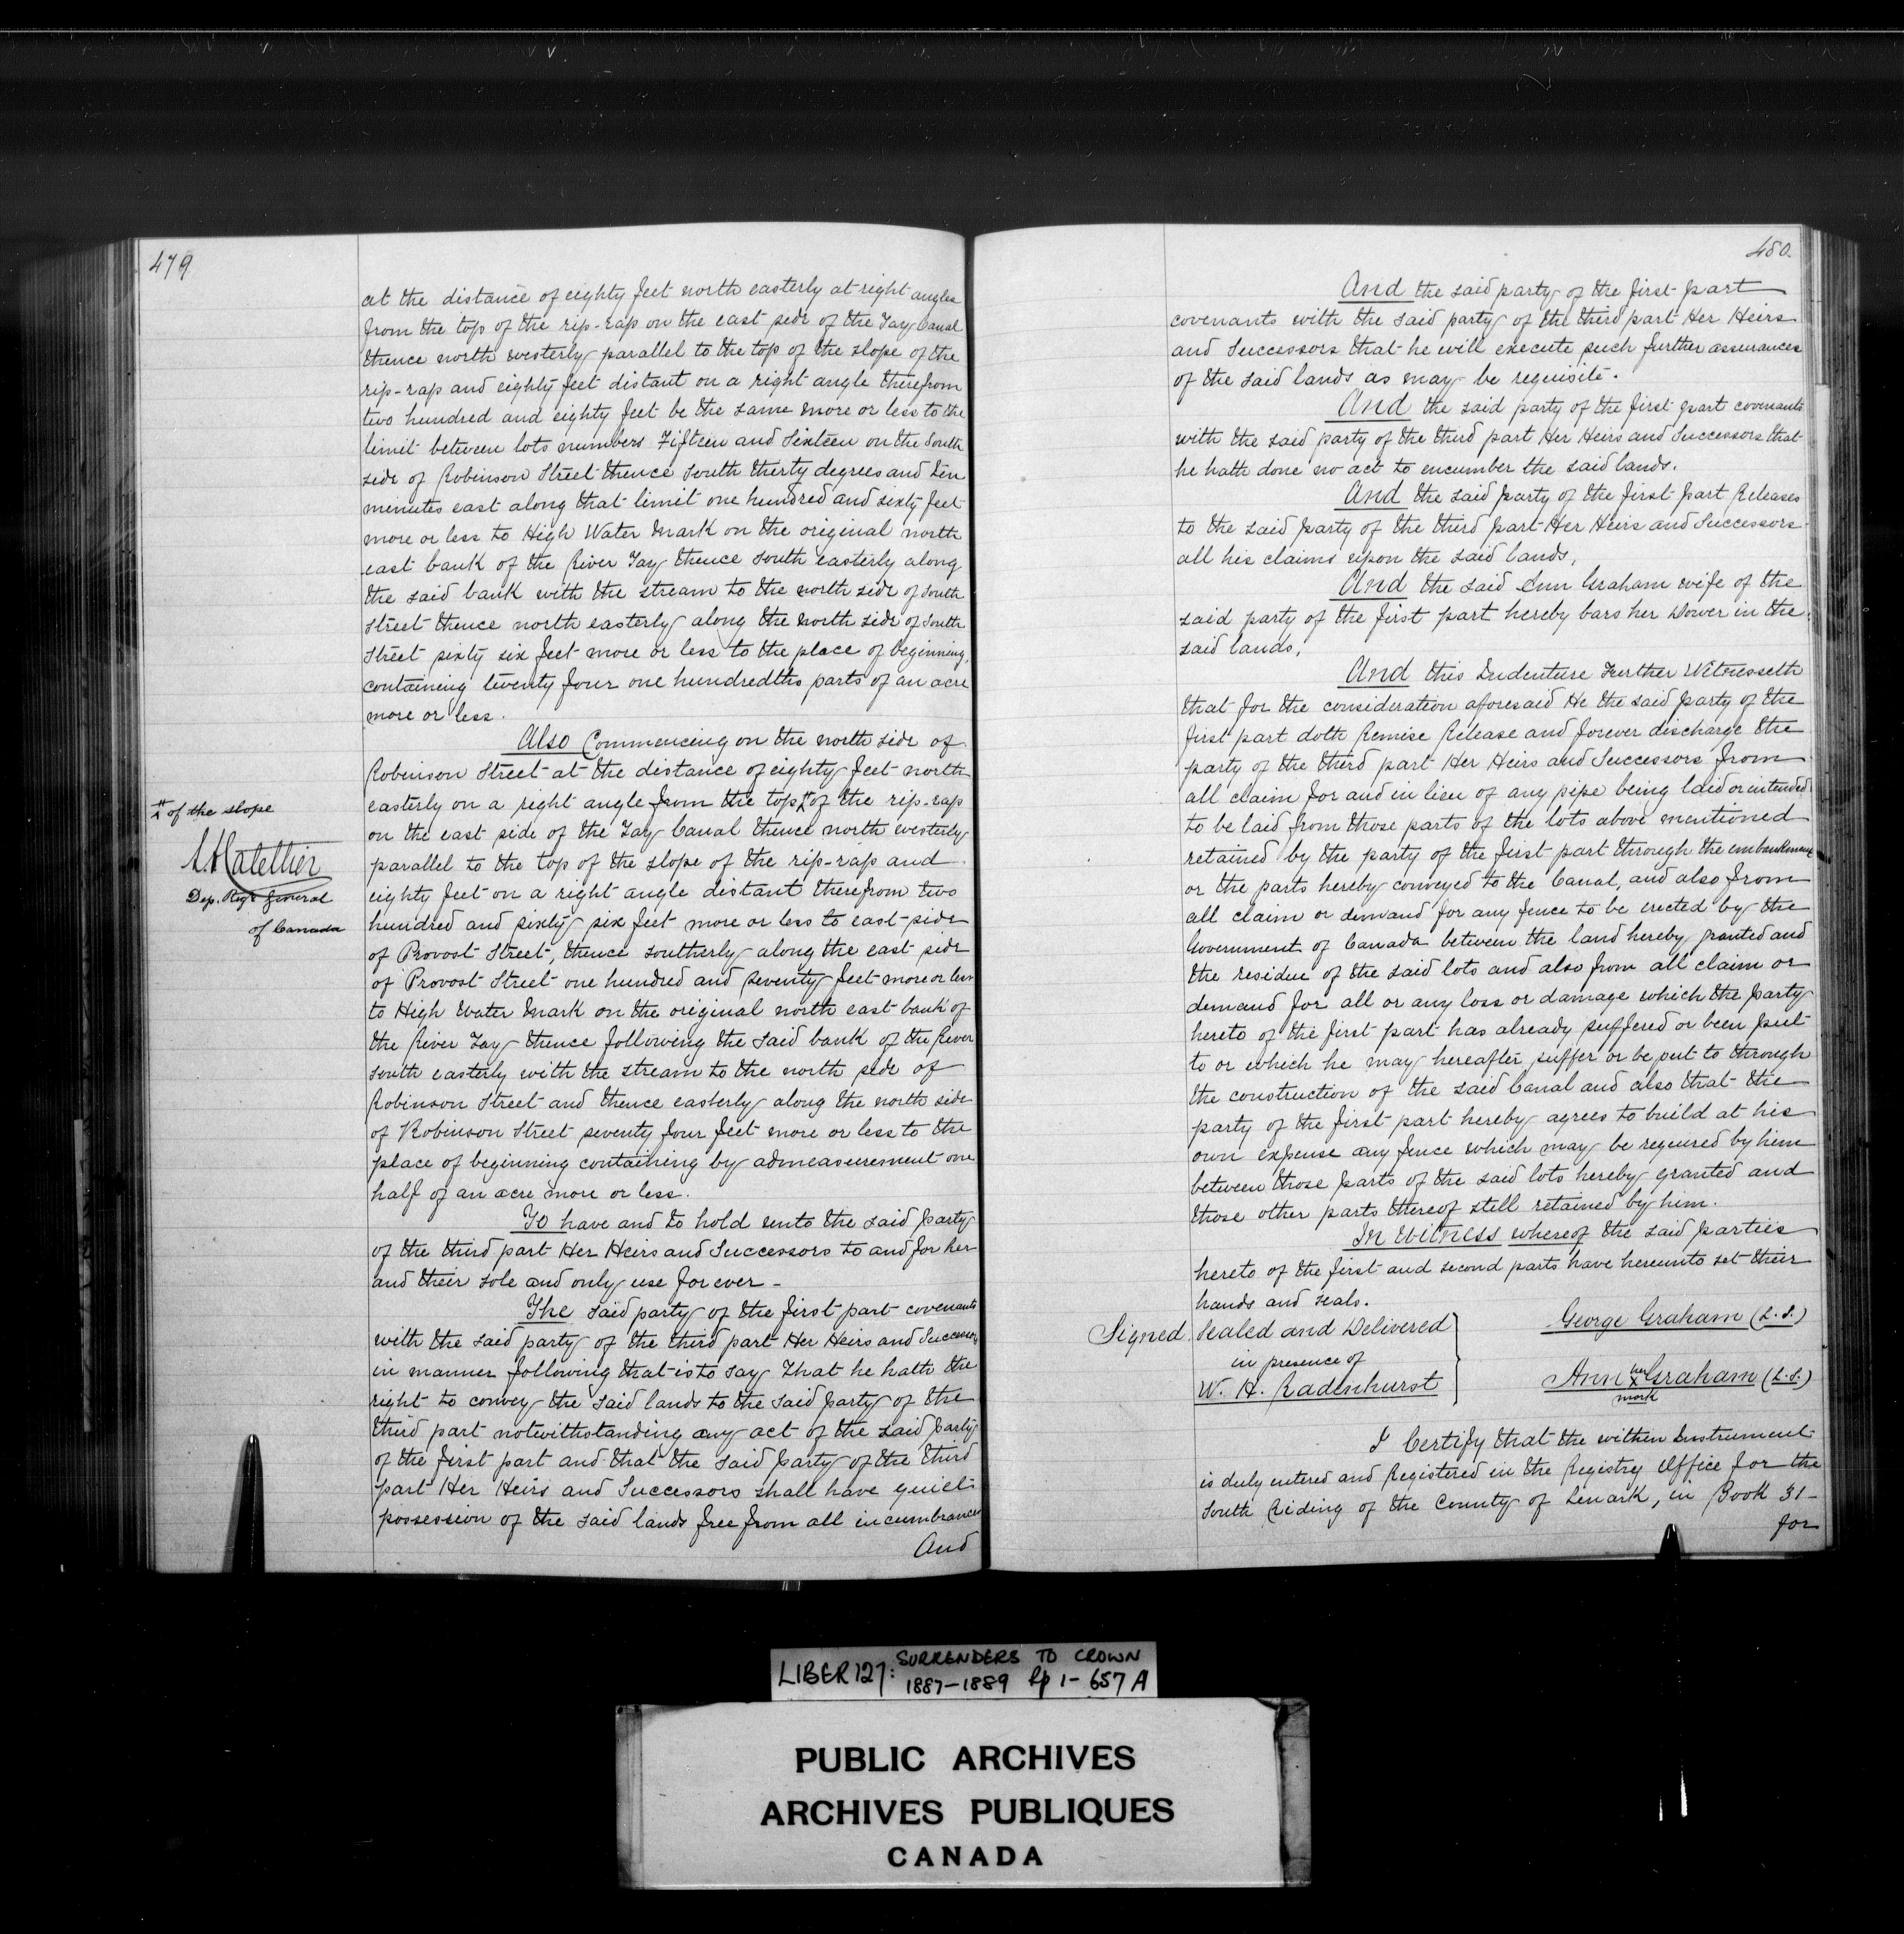 479
at the distance of eighty feet north easterly at right angles
from the top of the rip-rap on the east side of the Tay Canal
thence north westerly parallel to the top of the slope of the
rip-rap and eighty feet distant on a right angle therefrom
two hundred and eighty feet be the same more or less to the
limit between lots numbers Fifteen and Sixteen on the South
side of Robinson Street thence south thirty degrees and ten
minutes east along that limit one hundred and sixty feet
more or less to High Water Mark on the original north
east bank of the River Tay thence south easterly along
the said bank with the stream to the north side of South
Street thence north easterly along the north side of South
Street sixty six feet more or less to the place of beginning,
containing twenty four one hundredths parts of an acre
more or less.
Also Commencing on the north side of
Robinson Street at the distance of eighty feet north
easterly on a right angle from the top of the rip-rap
of the slope
on the east side of the Tay Canal thence north westerly
parallel to the top of the slope of the rip-rap and
eighty feet on a right angle distant therefrom two
Dep. Reg. General
hundred and sixty six feet more or less to east side
of Canada
of Provost Street, thence southerly along the east side
of Provost Street one hundred and seventy feet more or less
to High Water Mark on the original north east bank of
the River Tay thence following the said bank of the River
south easterly with the stream to the north side of
Robinson Street and thence easterly along the north side
of Robinson Street seventy four feet more or less to the
place of beginning containing by admeasurement one
half of an acre more or less.
To have and to hold unto the said party
of the third part Her Heirs and Successors to and for her
and their sole and only use forever -
The said party of the first part covenants
with the said party of the third part Her Heirs and Successors
in manner following that is to say That he hath the
right to convey the said lands to the said party of the
third part notwithstanding any act of the said party
of the first part and that the said party of the third
part Her Heirs and Successors shall have quiet
possession of the said lands free from all incumbrances
And
480.
And the said party of the first part
covenants with the said party of the third part Her Heirs
and Successors that he will execute such further assurances
of the said lands as may be requisite.
And the said party of the first part covenants
with the said party of the third part Her Heirs and Successors that
he hath done no act to encumber the said lands.
And the said party of the first part Releases
to the said party of the third part Her Heirs and Successors
all his claims upon the said lands,
And the said Ann Graham wife of the
said party of the first part hereby bars her Dower in the
said lands,
And this Indenture Further Witnesseth
that for the consideration aforesaid He the said party of the
first part doth Remise Release and forever discharge the
party of the third part Her Heirs and Successors from
all claim for and in lieu of any pipe being laid or intended
to be laid from those parts of the lots above mentioned
retained by the party of the first part through the embankment
or the parts hereby conveyed to the Canal, and also from
all claim or demand for any fence to be erected by the
Government of Canada between the land hereby granted and
the residue of the said lots and also from all claim or
demand for all or any loss or damage which the party
hereto of the first part has already suffered or been put
to or which he may hereafter suffer or be put to through
the construction of the said Canal and also that the
party of the first part hereby agrees to build at his
own expense any fence which may be required by him
between those parts of the said lots hereby granted and
those other parts thereof still retained by him.
In Witness whereof the said parties
hereto of the first and second parts have hereunto set their
hands and seals.
Signed, Sealed and Delivered
in presence of
W. H. Radenhurst
George Graham (L.S.)
Ann her X Graham (L.S.)
mark
I Certify that the within Instrument
is duly entered and Registered in the Registry Office for the
South Riding of the County of Lenark, in Book 31-
for
LIBER 127: SURRENDERS TO CROWN
1887-1889 Pp 1-657A
PUBLIC ARCHIVES
ARCHIVES PUBLIQUES
CANADA